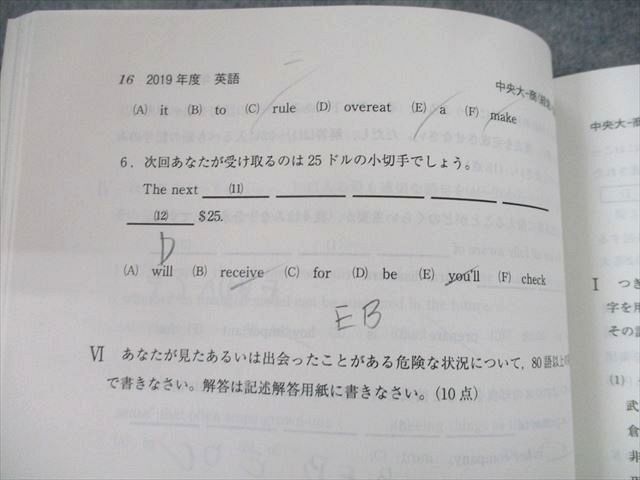 16 2019年度 英語
中央大-商
(A) it (B) to (C) rule (D) overeat (E) a (F) make
6. 次回あなたが受け取るのは25ドルの小切手でしょう。
The next (11)
(12) $25.
D
(A) will (B) receive (C) for (D) be (E) you'll (F) check
EB
VI あなたが見たあるいは出会ったことがある危険な状況について，80語以上
で書きなさい。解答は記述解答用紙に書きなさい。(10点)
中央大-商
I つぎ
字を用
その記
(1)
武
倉
非